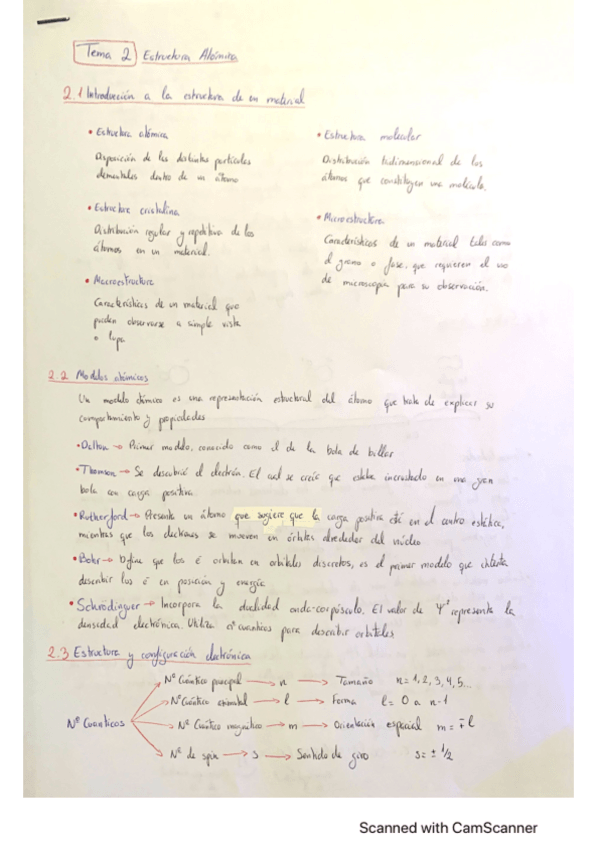 Tema 2 Estructura Atómica
2.1 Introducción a la estructura de un material
• Estructura atómica
Disposición de las distintas partículas
elementales dentro de un átomo
• Estructura cristalina
Distribución regular y repetitiva de los
átomos en un material.
• Macroestructura
Características de un material que
pueden observarse a simple vista
o lupa
• Estructura molecular
Distribución tridimensional de los
átomos que constituyen una molécula.
• Microestructura
Características de un material tales como
el grano o fase, que requieren el uso
de microscopía para su observación.
2.2 Modelos atómicos
Un modelo atómico es una representación estructural del átomo que trata de explicar su
comportamiento y propiedades
• Dalton → Primer modelo, conocido como el de la bola de billar
• Thomson → Se descubrió el electrón. El cual se creía que estaba incrustado en una gran
bola con carga positiva.
• Rutherford → Presenta un átomo que sugiere que la carga positiva está en el centro estática,
mientras que los electrones se mueven en órbitas alrededor del núcleo
• Bohr → Define que los é orbitan en orbitales discretos, es el primer modelo que intenta
describir los é en posición y energía
• Schrödinguer → Incorpora la dualidad onda-corpúsculo. El valor de Ψ² representa la
densidad electrónica. Utiliza nº cuanticos para describir orbitales
2.3 Estructura y configuración electrónica
Nº Cuanticos
Nº Cuántico principal → n → Tamaño n = 1, 2, 3, 4, 5...
Nº Cuántico orbital → l → Forma l = 0 a n-1
Nº Cuántico magnético → m → Orientación espacial m = ∓ l
Nº de spin → s → Sentido de giro s = ± 1/2
Scanned with CamScanner